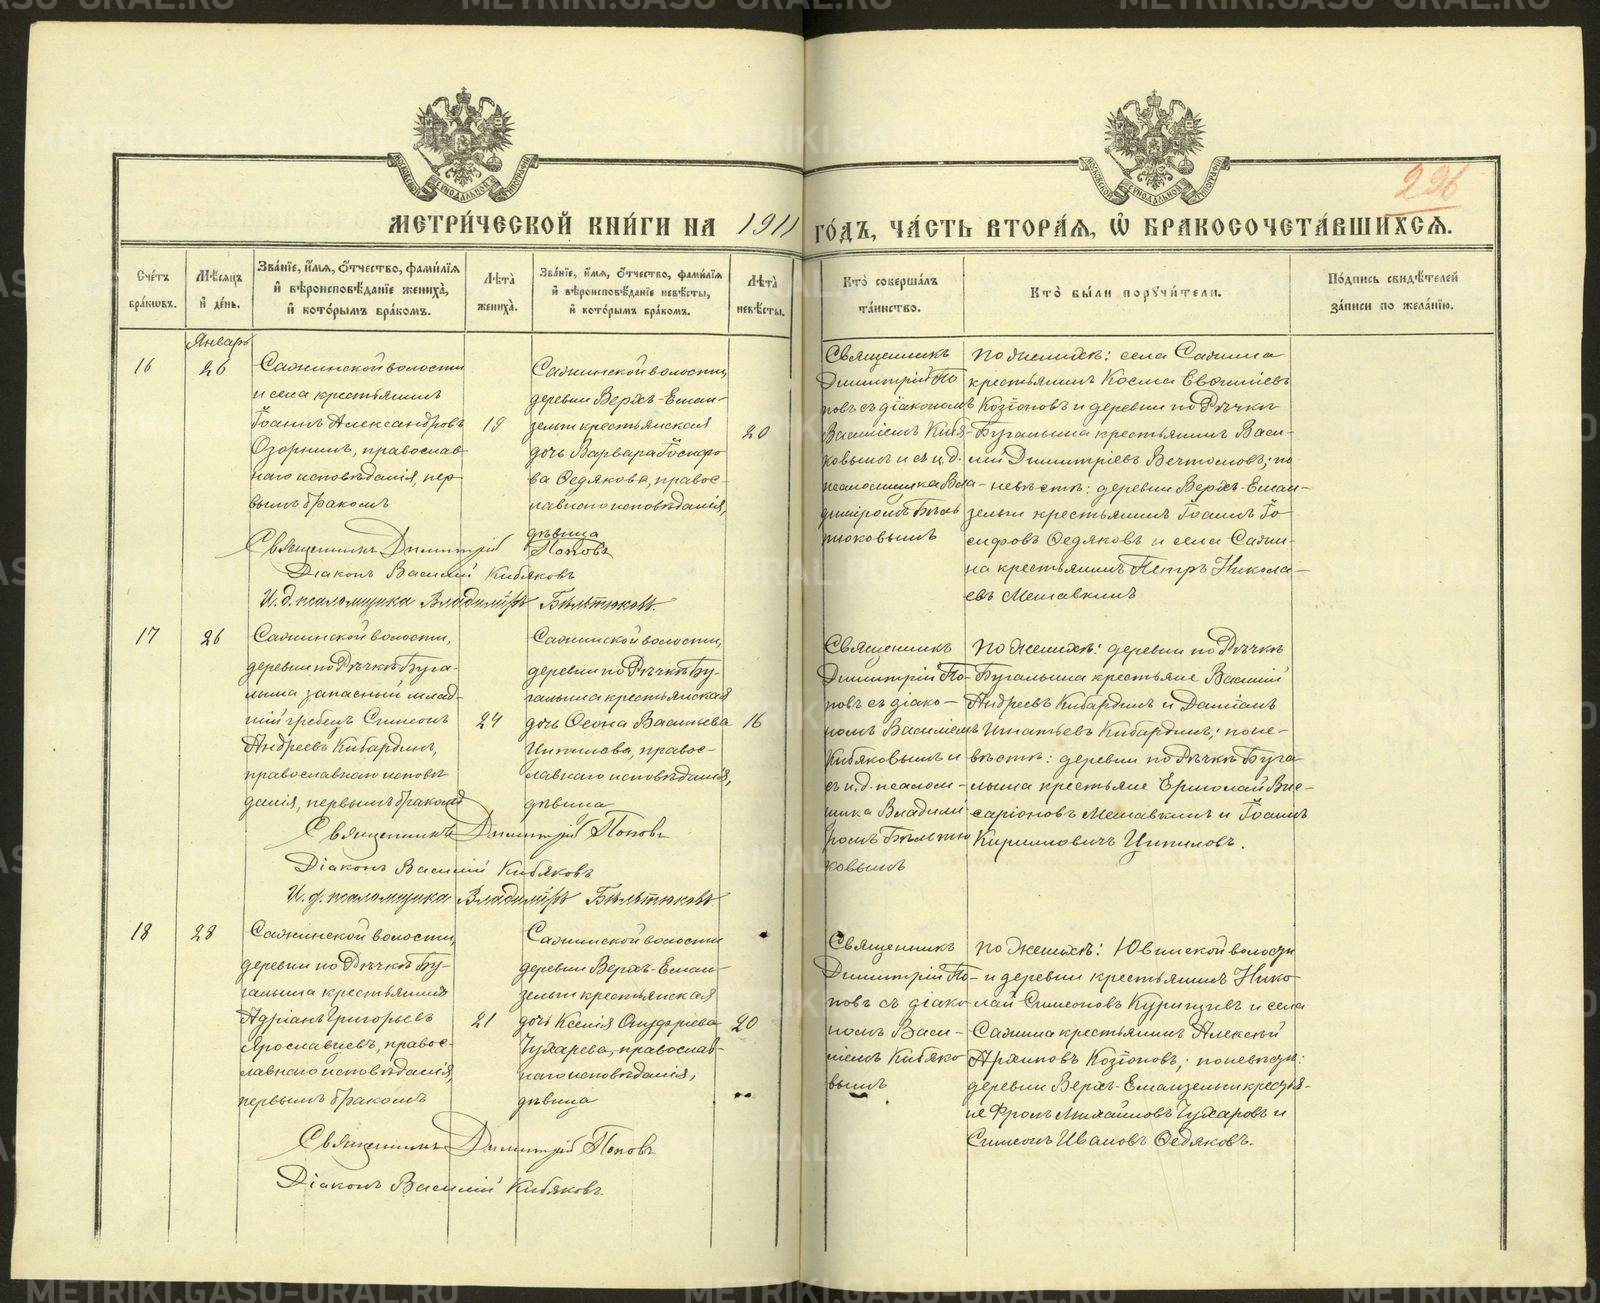 296
МЕТРИ́ЧЕСКОЙ КНИ́ГИ НА 1911 ГО́ДЪ, ЧА́СТЬ ВТОРА́Я, Ѡ҆ БРАКОСОЧЕТА́ВШИХСЯ.
Сче́тъ бра́ковъ.
Мѣ́сяцъ и҆ де́нь.
Зва́нїе, и҆́мя, ѻ҆́тчество, фами́лїя и҆ вѣроисповѣ́данїе жениха̀, и҆ кото́рымъ бра́комъ.
Лѣта̀ жениха̀.
Зва́нїе, и҆́мя, ѻ҆́тчество, фами́лїя и҆ вѣроисповѣ́данїе невѣ́сты, и҆ кото́рымъ бра́комъ.
Лѣта̀ невѣ́сты.
Кто̀ соверша́лъ та́инство.
Кто̀ бы́ли порꙋчи́тели.
По́дпись свидѣ́телей за́писи по жела́нїю.
Январь
16
26
Сажинской волости
и села крестьянинъ
Іоаннъ Александровъ
Озорнинъ, православ-
наго исповѣданія, пер-
вымъ бракомъ
19
Сажинской волости,
деревни Верхъ-Еман-
зельги крестьянская
дочь Варвара Іосифо-
ва Ѳедякова, правос-
лавнаго исповѣданія,
дѣвица
20
Священникъ
Димитрій По
повъ съ діакономъ
Василіемъ Кибя-
ковымъ и съ и.д.
псаломщика Вла-
диміромъ Бѣль
тюковымъ
По женихѣ: села Сажина
крестьянинъ Косма Евѳиміевъ
Козіоновъ и деревни по Рѣчкѣ
Бугалыша крестьянинъ Васи-
лій Димитріевъ Вечтомовъ; по
невѣстѣ: деревни Верхъ-Еман-
зельги крестьянинъ Іоаннъ Іо
сифовъ Ѳедяковъ и села Сажи-
на крестьянинъ Петръ Никола-
евъ Мешавкинъ
Священникъ Димитрій Поповъ
Діаконъ Василій Кибяковъ
И.д. псаломщика Владиміръ Бѣльтюковъ.
17
26
Сажинской волости,
деревни по Рѣчкѣ Буга-
лыша запасный млад-
шій гребецъ Симеонъ
Андреевъ Кибардинъ,
православнаго исповѣ
данія, первымъ бракомъ
24
Сажинской волости,
деревни по Рѣчкѣ Бу-
галыша крестьянская
дочь Ѳеона Васильева
Ципилова, правос-
лавнаго исповѣданія,
дѣвица
16
Священникъ
Димитрій По-
повъ съ діако-
номъ Василіемъ
Кибяковымъ и
съ и.д. псалом-
щика Владимі
ромъ Бѣльтю
ковымъ
По женихѣ: деревни по Рѣчкѣ
Бугалыша крестьяне Василій
Андреевъ Кибардинъ и Даміанъ
Игнатьевъ Кибардинъ; по не-
вѣстѣ: деревни по Рѣчкѣ Буга-
лыша крестьяне Ермолай Вис-
саріоновъ Мешавкинъ и Іоаннъ
Кирилловичъ Ципиловъ.
Священникъ Димитрій Поповъ
Діаконъ Василій Кибяковъ
И.д. псаломщика Владиміръ Бѣльтюковъ
18
28
Сажинской волости,
деревни по Рѣчкѣ Бу-
галыша крестьянинъ
Адріанъ Григорьевъ
Ярославцевъ, правос-
лавнаго исповѣданія,
первымъ бракомъ
21
Сажинской волости
деревни Верхъ-Еман-
зельги крестьянская
дочь Ксенія Онуфріева
Чухарева, православ-
наго исповѣданія,
дѣвица
20
Священникъ
Димитрій По-
повъ съ діако
номъ Васи-
ліемъ Кибяко
вымъ
По женихѣ: Ювинской волости
и деревни крестьянинъ Нико
лай Симеоновъ Курицинъ и села
Сажина крестьянинъ Алексій
Архиповъ Козіоновъ; по невѣстѣ:
деревни Верхъ-Еманзельги крестья-
не Фролъ Михаиловъ Чухаровъ и
Симеонъ Ивановъ Ѳедяковъ.
Священникъ Димитрій Поповъ
Діаконъ Василій Кибяковъ.
METRIKI.GASO-URAL.RU